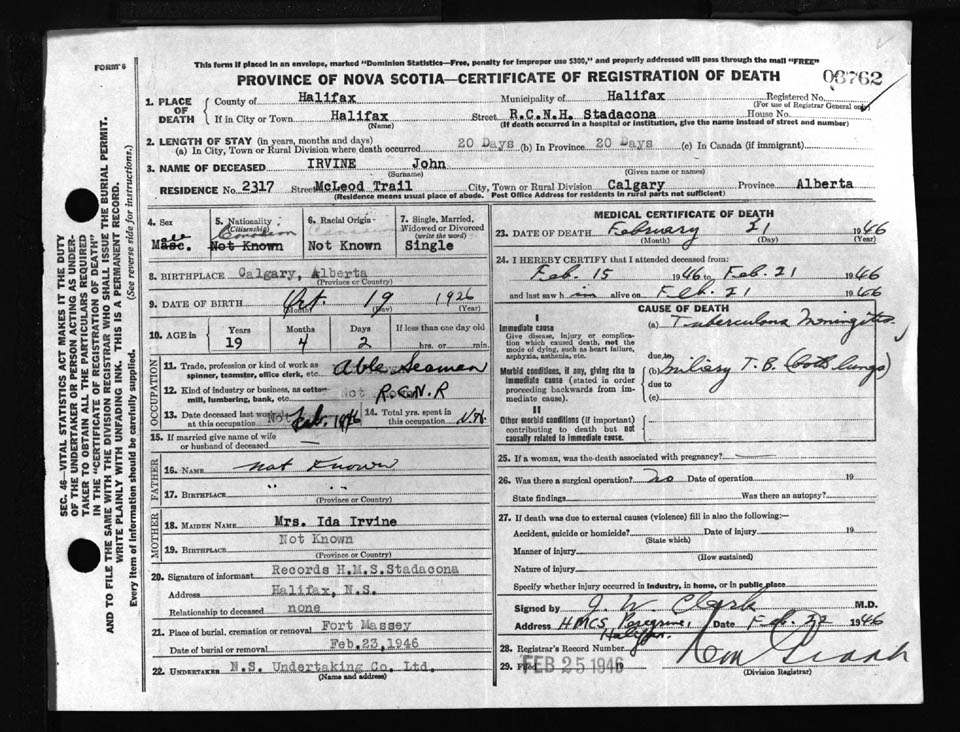 FORM 6
This form if placed in an envelope, marked "Dominion Statistics—Free, penalty for improper use $300," and properly addressed will pass through the mail "FREE"
PROVINCE OF NOVA SCOTIA—CERTIFICATE OF REGISTRATION OF DEATH
06762
1. PLACE OF DEATH
County of Halifax Municipality of Halifax Registered No.
(For use of Registrar General only)
If in City or Town Halifax Street R.C.N.H. Stadacona House No.
(Name) (If death occurred in a hospital or institution, give the name instead of street and number)
2. LENGTH OF STAY (in years, months and days)
(a) In City, Town or Rural Division where death occurred 20 Days (b) In Province 20 Days (c) In Canada (if immigrant)
3. NAME OF DECEASED IRVINE John
(Surname) (Given name or names)
RESIDENCE No. 2317 Street McLeod Trail City, Town or Rural Division Calgary Province Alberta
(Residence means usual place of abode. Post Office Address for residents in rural parts not sufficient)
4. Sex
Male
5. Nationality (Citizenship)
Canadian
Not Known
6. Racial Origin
Not Known
7. Single, Married, Widowed or Divorced (write the word)
Single
8. BIRTHPLACE Calgary, Alberta
(Province or Country)
9. DATE OF BIRTH Oct 19 1926
(Month) (Day) (Year)
10. AGE in Years Months Days If less than one day old
19 4 2 hrs. or min.
OCCUPATION
11. Trade, profession or kind of work as spinner, teamster, office clerk, etc. Able Seaman
12. Kind of industry or business, as cotton mill, lumbering, bank, etc. Not R.C.N.R
13. Date deceased last worked at this occupation Not Feb. 1946
14. Total yrs. spent in this occupation
15. If married give name of wife or husband of deceased —
FATHER
16. NAME not Known
17. BIRTHPLACE " "
(Province or Country)
MOTHER
18. MAIDEN NAME Mrs. Ida Irvine
19. BIRTHPLACE Not Known
(Province or Country)
20. Signature of informant Records H.M.S.Stadacona
Address Halifax, N.S.
Relationship to deceased none
21. Place of burial, cremation or removal Fort Massey
Date of burial or removal Feb.23,1946
22. UNDERTAKER N.S. Undertaking Co. Ltd.
(Name and address)
MEDICAL CERTIFICATE OF DEATH
23. DATE OF DEATH February 21 1946
(Month) (Day) (Year)
24. I HEREBY CERTIFY that I attended deceased from:
Feb. 15 1946 to Feb. 21 1946
and last saw h im alive on Feb. 21 1946
CAUSE OF DEATH
I
Immediate cause
Give disease, injury or complication which caused death, not the mode of dying, such as heart failure, asphyxia, asthenia, etc.
(a) Tuberculous Meningitis
due to
Morbid conditions, if any, giving rise to immediate cause (stated in order proceeding backwards from immediate cause).
(b) Miliary T.B. (both lungs)
due to
(c)
II
Other morbid conditions (if important) contributing to death but not causally related to immediate cause.
25. If a woman, was the death associated with pregnancy? —
26. Was there a surgical operation? no Date of operation 19
State findings Was there an autopsy?
27. If death was due to external causes (violence) fill in also the following:—
Accident, suicide or homicide? Date of injury 19
(State which)
Manner of injury
(How sustained)
Nature of injury
Specify whether injury occurred in industry, in home, or in public place
Signed by J. W. Clark M.D.
Address HMCS Peregrine, Halifax. Date Feb. 22 1946
28. Registrar's Record Number
29. Filed FEB 25 1946 19
(Division Registrar)
SEC. 46—VITAL STATISTICS ACT MAKES IT THE DUTY
OF THE UNDERTAKER OR PERSON ACTING AS UNDERTAKER TO OBTAIN ALL THE PARTICULARS REQUIRED
IN THE "CERTIFICATE OF REGISTRATION OF DEATH"
AND TO FILE THE SAME WITH THE DIVISION REGISTRAR WHO SHALL ISSUE THE BURIAL PERMIT.
WRITE PLAINLY WITH UNFADING INK. THIS IS A PERMANENT RECORD.
Every item of information should be carefully supplied. (See reverse side for instructions.)